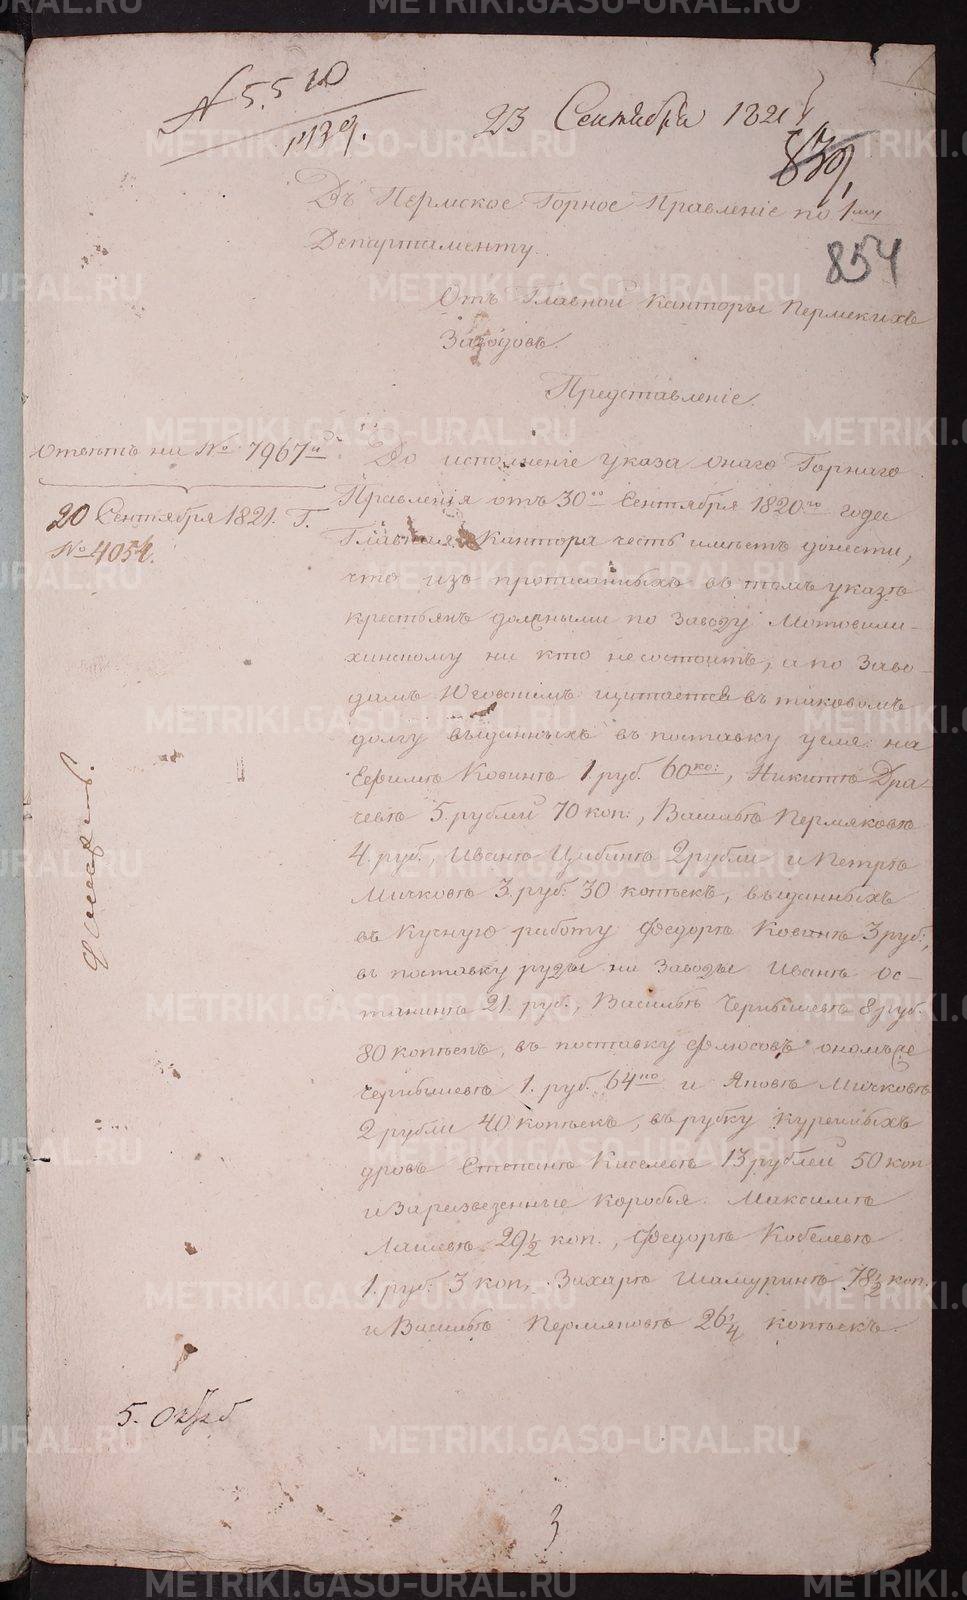 N 5510
1439.
23 Сентября 1821
839,
Въ Пермское Горное Правленіе по 1му
Департаменту.
854
Отъ Главной Канторы Пермскихъ
Заводовъ.
Представленіе.
Ответъ на № 7967й
20 Сентября 1821. Г.
№ 4054.
Во исполненіе указа онаго Горнаго
Правленія отъ 30го Сентября 1820го года
Главная Кантора честь имѣетъ донести,
что изъ прописанныхъ въ томъ указѣ
крестьянъ должными по Заводу Мотовили-
хинскому ни кто несостоитъ, а по Заво-
дамъ Юговскимъ щитается въ таковомъ
долгу выданныхъ въ поставку угля: на
Ефимѣ Ковинѣ 1 руб. 60 ко:, Никитѣ Дра-
чевѣ 5. рублей 70 коп:, Васильѣ Пермяковѣ
4. руб., Иванѣ Цибинѣ 2 рубли и Петрѣ
Мичковѣ 3. руб: 30 копѣекъ, выданныхъ
въ Кучную работу Федорѣ Ковинѣ 3 руб:,
въ поставку руды на Заводы Иванѣ Ос-
танинѣ 21. руб., Васильѣ Чернышевѣ 8 руб.
80 копѣекъ, въ поставку флюсовъ ономъ же
Чернышевѣ 1. руб. 64 ко и Яковѣ Мичковѣ
2 рубли 40 копѣекъ, въ рубку куренныхъ
дровъ Степанѣ Киселевѣ 13 рублей 50 коп
и Заразвезенные коробья. Максимѣ
Лашевѣ 29½ коп., Федорѣ Кобелевѣ
1. руб: 3 коп, Захарѣ Шамуринѣ 78½ коп.
и Васильѣ Пермяковѣ 26¼ копѣекъ.
5. Октяб
3
METRIKI.GASO-URAL.RU